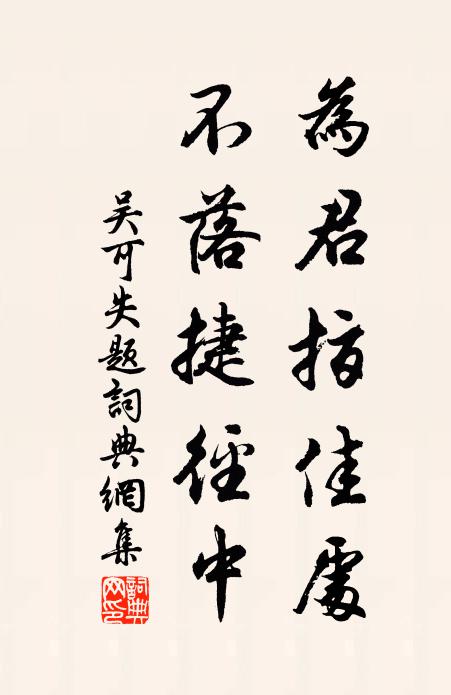 為君指佳處
不落捷徑中
吳可失題詞典網集
詞典网印